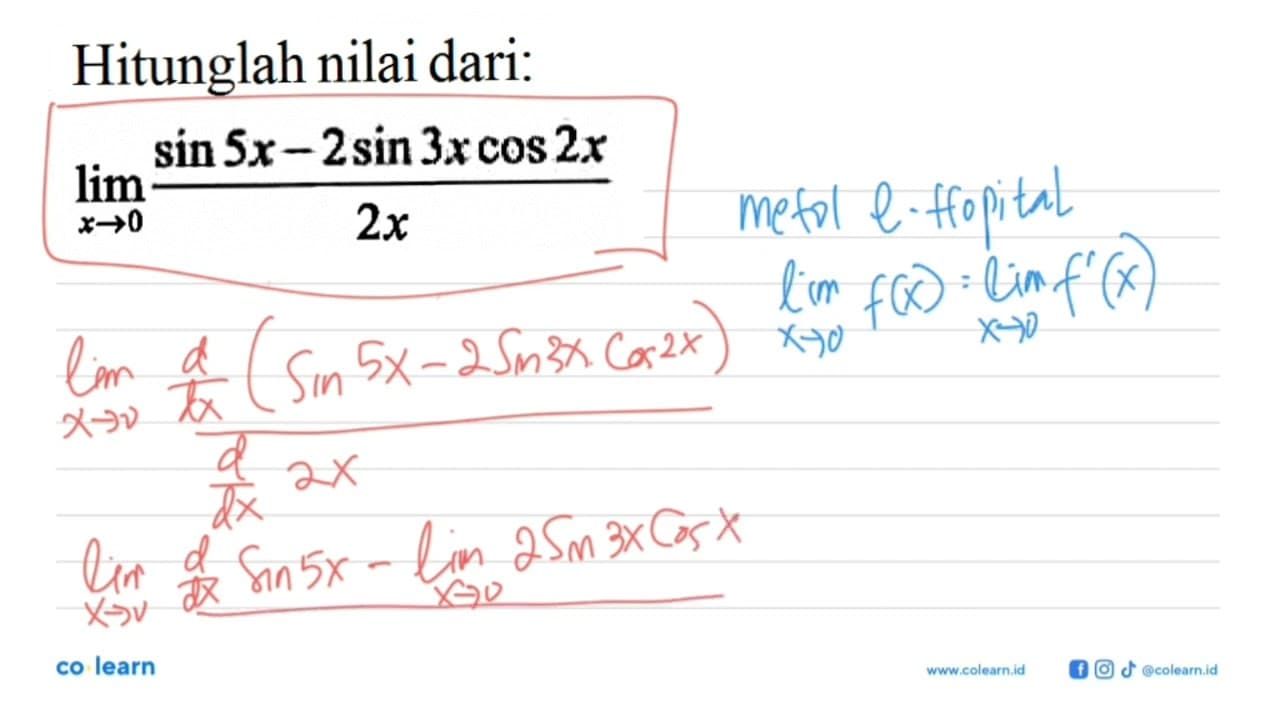 Hitunglah nilai dari:
lim x→0 (sin 5x – 2 sin 3x cos 2x) / 2x
metol l-Hopital
lim x→0 f(x) = lim x→0 f'(x)
lim x→0 d/dx (Sin 5x – 2 Sin 3x. Cos 2x)
d/dx 2x
lim x→0 d/dx Sin 5x – lim x→0 2 Sin 3x Cos x
co learn
www.colearn.id
@colearn.id